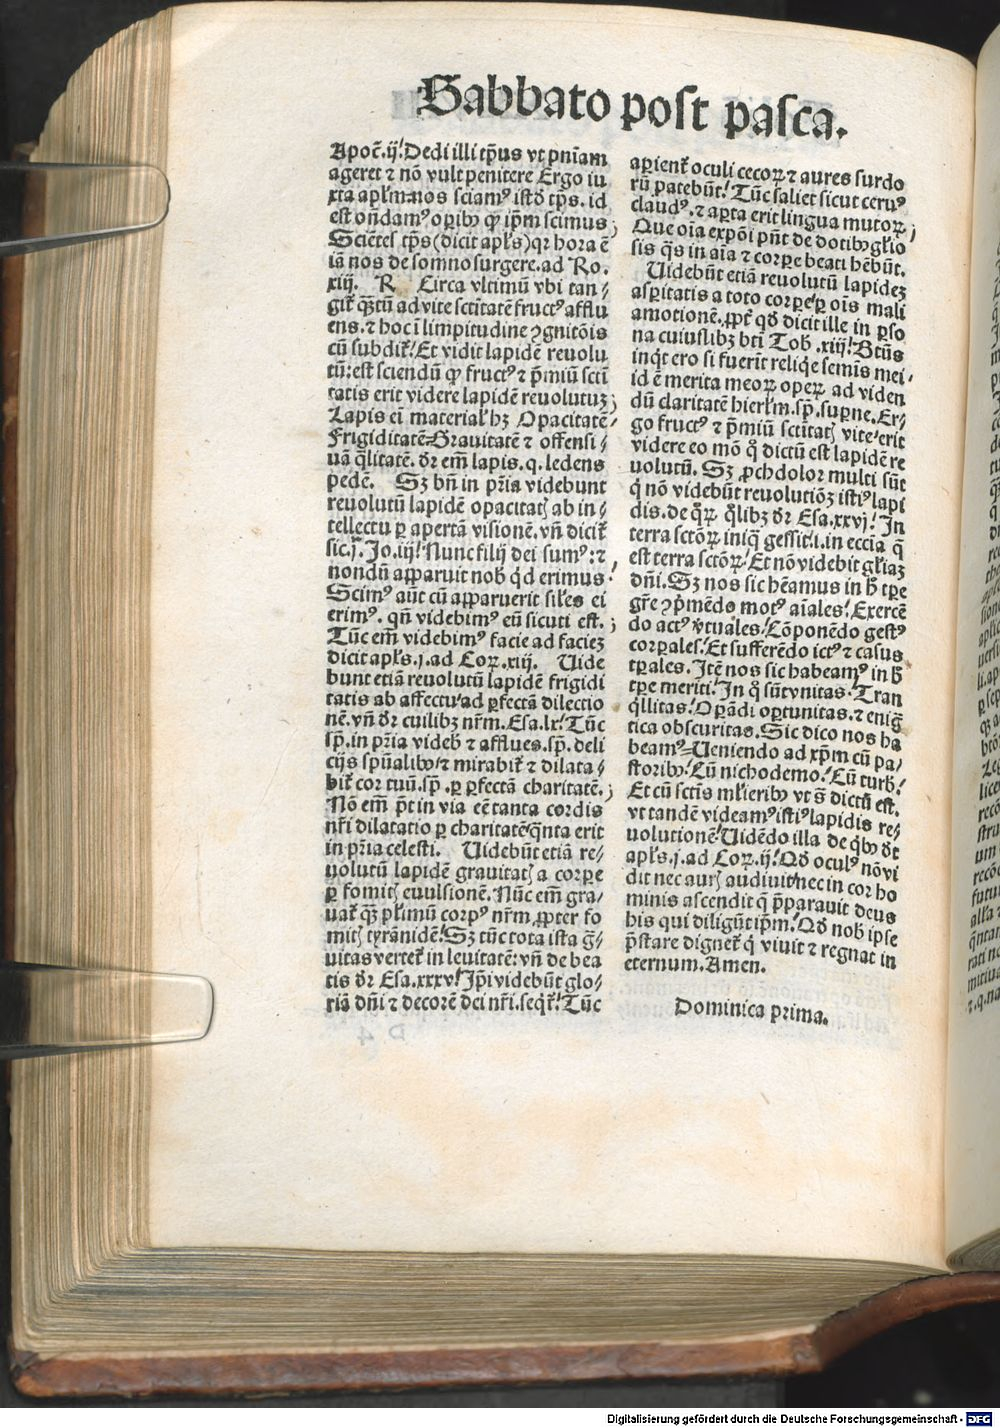 Sabbato post pasca.
Apoc̃.ij! Dedi illi tp̃us vt pniam
ageret ⁊ nõ vult penitere Ergo iu
xta apl̃m nos sciamꝰ istð tp̃s. id
est oñdamꝰ oꝑibꝰ ꝙ ip̃m scimus;
Sciẽtes tp̃s (dicit apl̃s) qꝛ hora ẽ
iã nos de somno surgere. ad Ro.
xiij. R Circa vltimũ vbi tan⸗
git̃ qꝫtũ ad vite sctĩtatẽ fructꝰ afflu
ens. ⁊ hoc ĩ limpitudine ꝯgnitõis
cũ subdit̃! Et vidit lapidẽ reuolu
tũ: est sciendũ ꝙ fructꝰ ⁊ p̃miũ scti
tatis erit videre lapidẽ reuolutuꝫ;
Lapis ei material̃ hꝫ Opacitatẽ⸗
Frigiditatẽ⸗Grauitatẽ ⁊ offensi⸗
uã q̃litatẽ. dr̃ em̃ lapis. q. ledens
pedẽ. Sꝫ bñ in pr̃ia videbunt
reuolutũ lapidẽ opacitatꝭ ab in⸗
tellectu ꝑ apertã visionẽ. vñ dicit̃
sic.j. Jo.iij! Nunc filij dei sumꝰ: ⁊
nondũ apparuit nob̃ qd̃ erimus!
Scimꝰ aũt cũ apparuerit sil̃es ei
erimꝰ. qñ videbimꝰ eũ sicuti est.;
Tũc em̃ videbimꝰ facie ad facieꝫ
dicit apl̃s.j.ad Coꝝ.xiij. Uide
bunt etiã reuolutũ lapidẽ frigidi
tatis ab affectu⸍ad ꝑfectã dilectio
nẽ. vñ dr̃ cuilibꝫ nr̃m. Esa.lx! Tũc
sp̃. in pr̃ia videb̃ ⁊ afflues. sp̃. deli
cijs sp̃ualibꝰ⸍⁊ mirabit̃ ⁊ dilata⸗
bit̃ cor tuũ. sp̃. ꝑ ꝑfectã charitatẽ.;
Nõ em̃ p̃t in via eẽ tanta cordis
nr̃i dilatatio ꝑ charitatẽ⸍q̃nta erit
in pr̃ia celesti. Uidebũt etiã re⸗
uolutũ lapidẽ grauitatꝭ a corpe
ꝑ fomitꝭ euulsionẽ. Nũc em̃ gra⸗
uat̃ qꝫ pl̃imũ corpꝰ nr̃m ꝓpter fo
mitꝭ tyrãnidẽ! Sꝫ tũc tota ista g̃⸗
uitas vertet̃ in leuitatẽ: vñ de bea
tis dr̃ Esa.xxxv! Jp̃i videbũt glo⸗
riã dñi ⁊ decorẽ dei nr̃i. seqt̃! Tũc
aꝑient̃ oculi cecoꝝ ⁊ aures surdo
rũ patebũt! Tũc saliet sicut ceruꝰ
claudꝰ. ⁊ aꝑta erit lingua mutoꝝ;
Que oĩa expõi pñt de dotibꝰ gl̃io
sis qs̃ in aĩa ⁊ corpe beati hẽbũt.
Uidebũt etiã reuolutũ lapideꝫ
asꝑitatis a toto corpe⸍ꝑ oĩs mali
amotionẽ. ꝓut̃ qð dicit ille in pso
na cuiuslibꝫ bti Tob.xiij! Btũs
inqt ero si fuerĩt reliqe semĩs mei⸗
id ẽ merita meoꝝ opeꝝ ad viden
dũ claritatẽ hierl̃m. sp̃. supne. Er⸗
go fructꝰ ⁊ p̃miũ sctĩtatꝭ vite⸍erit
videre eo mõ q̊ dictũ est lapidẽ re
uolutũ. Sꝫ ꝓch dolor multi sũt
q̃ nõ videbũt reuolutiõꝫ istiꝰ lapi
dis. de qꝝ q̃libꝫ dr̃ Esa.xxvj! Jn
terra sctõꝝ iniq̃ gessit! i. in eccĩa q̃
est terra sctõꝝ! Et nõ videbit gl̃iaꝫ
dñi. Sꝫ nos sic hẽamus in h̃ tpe
gr̃e ꝯp̃mẽdo motꝰ aĩales! Exercẽ
do actꝰ v̾tuales! Cõponẽdo gestꝰ
corꝑales! Et sufferẽdo ictꝰ ⁊ casus
tꝑales. Jtẽ nos sic habeamꝰ in h̃
tpe meriti! Jn q̊ sũt vnitas. Tran
q̃llitas! Oꝑãdi oꝑtunitas. ⁊ enig̃
tica obscuritas. Sic dico nos ha
beamꝰ⸗Ueniendo ad xp̃m cũ pa⸗
storibꝰ! Cũ nichodemo! Cũ turb̃!
Et cũ sctĩs ml̃ieribꝰ vt s̃ dictũ est.
vt tandẽ videamꝰ istiꝰ lapidis re⸗
uolutionẽ! Uidẽdo illa de qbꝰ dt̃
apl̃s.j.ad Coꝝ.ij! Qð oculꝰ nõ vi
dit nec aurꝭ audiuit⸍nec in cor ho
minis ascendit q̃ p̃parauit deus
his qui diligũt ip̃m! Qð nob̃ ipse
p̃stare dignet̃ q̃ viuit ⁊ regnat in
eternum. Amen.
Dominica prima.
Digitalisierung gefördert durch die Deutsche Forschungsgemeinschaft - DFG